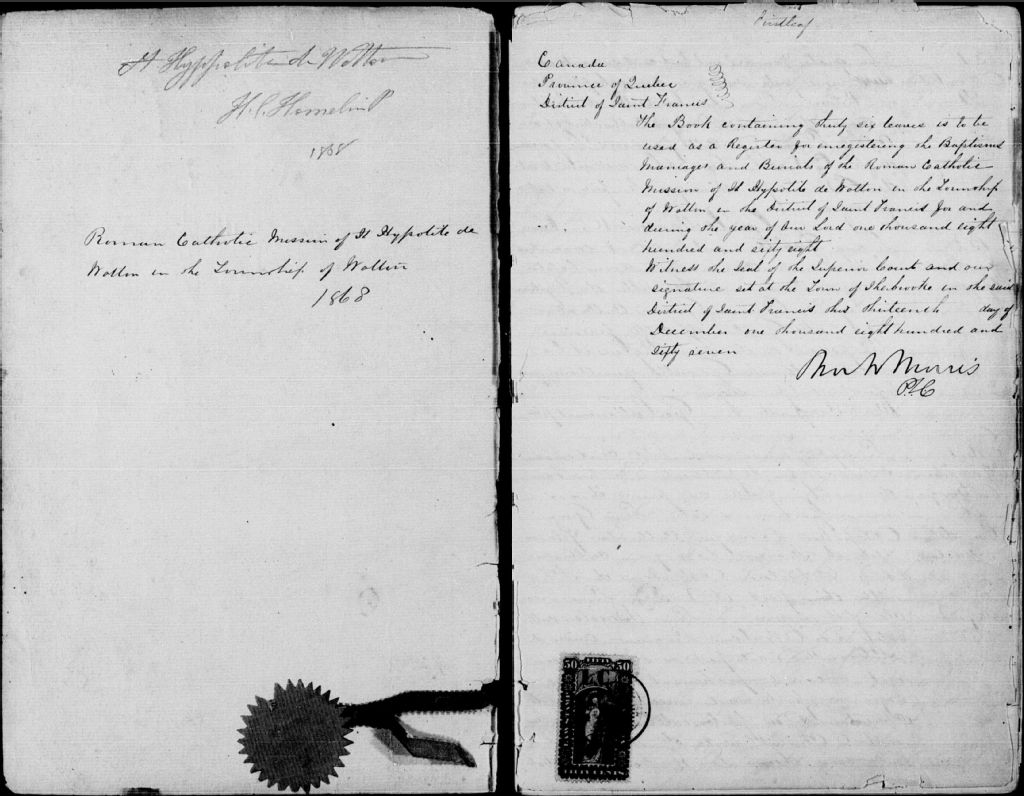 St Hyppolite de Wotton
1868
Roman Catholic Mission of St Hypolite de
Wotton in the Township of Wotton
1868
First leaf
Canada
Province of Quebec
District of Saint Francis
The Book containing thirty six leaves is to be
used as a Register for enregistering the Baptisms
Marriages and Burials of the Roman Catholic
Mission of St Hypolite de Wotton in the Township
of Wotton in the District of Saint Francis for and
during the year of Our Lord one thousand eight
hundred and sixty eight
Witness the Seal of the Superior Court and our
signature set at the Town of Sherbrooke in the said
District of Saint Francis this thirteenth day of
December one thousand eight hundred and
sixty seven
Morris
P.S.C
50 FIFTY 50
L C
LAW STAMP
FIFTY CENTS